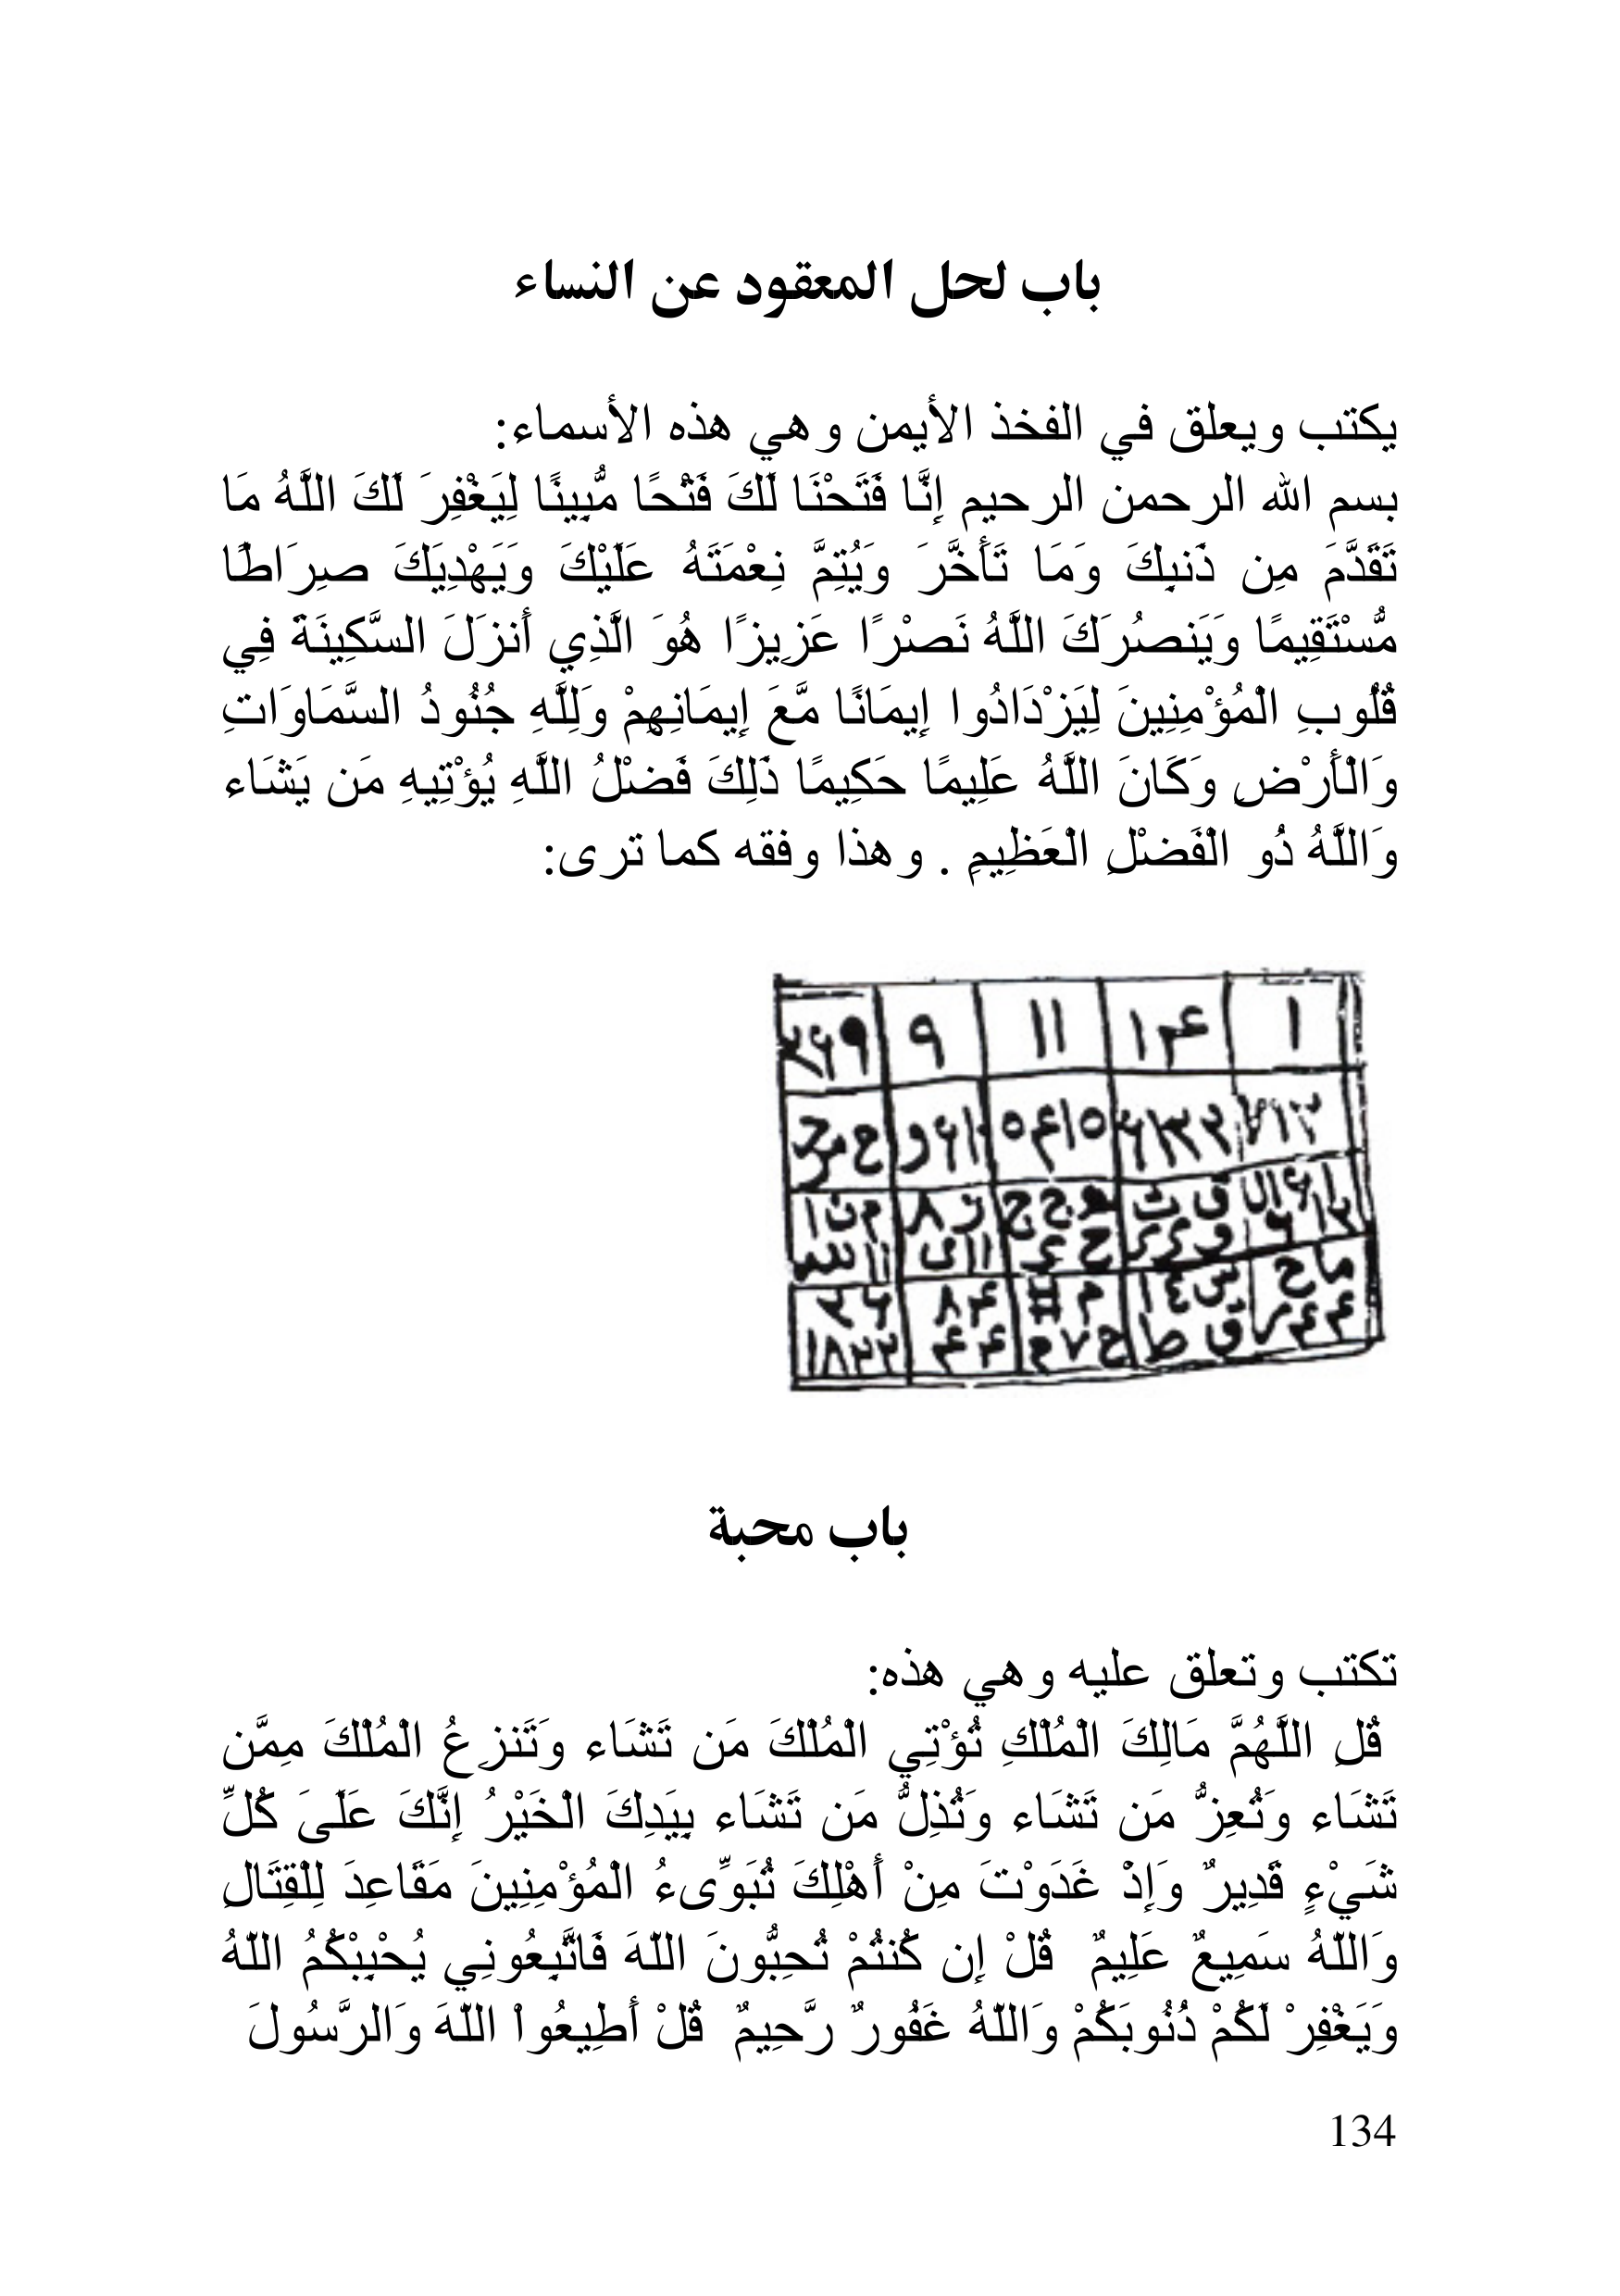 باب لحل المعقود عن النساء
يكتب ويعلق في الفخذ الأيمن وهي هذه الأسماء:
بسم الله الرحمن الرحيم إِنَّا فَتَحْنَا لَكَ فَتْحًا مُّبِينًا لِيَغْفِرَ لَكَ اللَّهُ مَا
تَقَدَّمَ مِن ذَنبِكَ وَمَا تَأَخَّرَ وَيُتِمَّ نِعْمَتَهُ عَلَيْكَ وَيَهْدِيَكَ صِرَاطًا
مُّسْتَقِيمًا وَيَنصُرَكَ اللَّهُ نَصْرًا عَزِيزًا هُوَ الَّذِي أَنزَلَ السَّكِينَةَ فِي
قُلُوبِ الْمُؤْمِنِينَ لِيَزْدَادُوا إِيمَانًا مَّعَ إِيمَانِهِمْ وَلِلَّهِ جُنُودُ السَّمَاوَاتِ
وَالْأَرْضِ وَكَانَ اللَّهُ عَلِيمًا حَكِيمًا ذَلِكَ فَضْلُ اللَّهِ يُؤْتِيهِ مَن يَشَاء
وَاللَّهُ ذُو الْفَضْلِ الْعَظِيمِ . وهذا وفقه كما ترى:
١ ١١ ٩
باب محبة
تكتب وتعلق عليه وهي هذه:
قُلِ اللَّهُمَّ مَالِكَ الْمُلْكِ تُؤْتِي الْمُلْكَ مَن تَشَاء وَتَنزِعُ الْمُلْكَ مِمَّن
تَشَاء وَتُعِزُّ مَن تَشَاء وَتُذِلُّ مَن تَشَاء بِيَدِكَ الْخَيْرُ إِنَّكَ عَلَىَ كُلِّ
شَيْءٍ قَدِيرٌ وَإِذْ غَدَوْتَ مِنْ أَهْلِكَ تُبَوِّىءُ الْمُؤْمِنِينَ مَقَاعِدَ لِلْقِتَالِ
وَاللّهُ سَمِيعٌ عَلِيمٌ قُلْ إِن كُنتُمْ تُحِبُّونَ اللّهَ فَاتَّبِعُونِي يُحْبِبْكُمُ اللّهُ
وَيَغْفِرْ لَكُمْ ذُنُوبَكُمْ وَاللّهُ غَفُورٌ رَّحِيمٌ قُلْ أَطِيعُواْ اللّهَ وَالرَّسُولَ
134